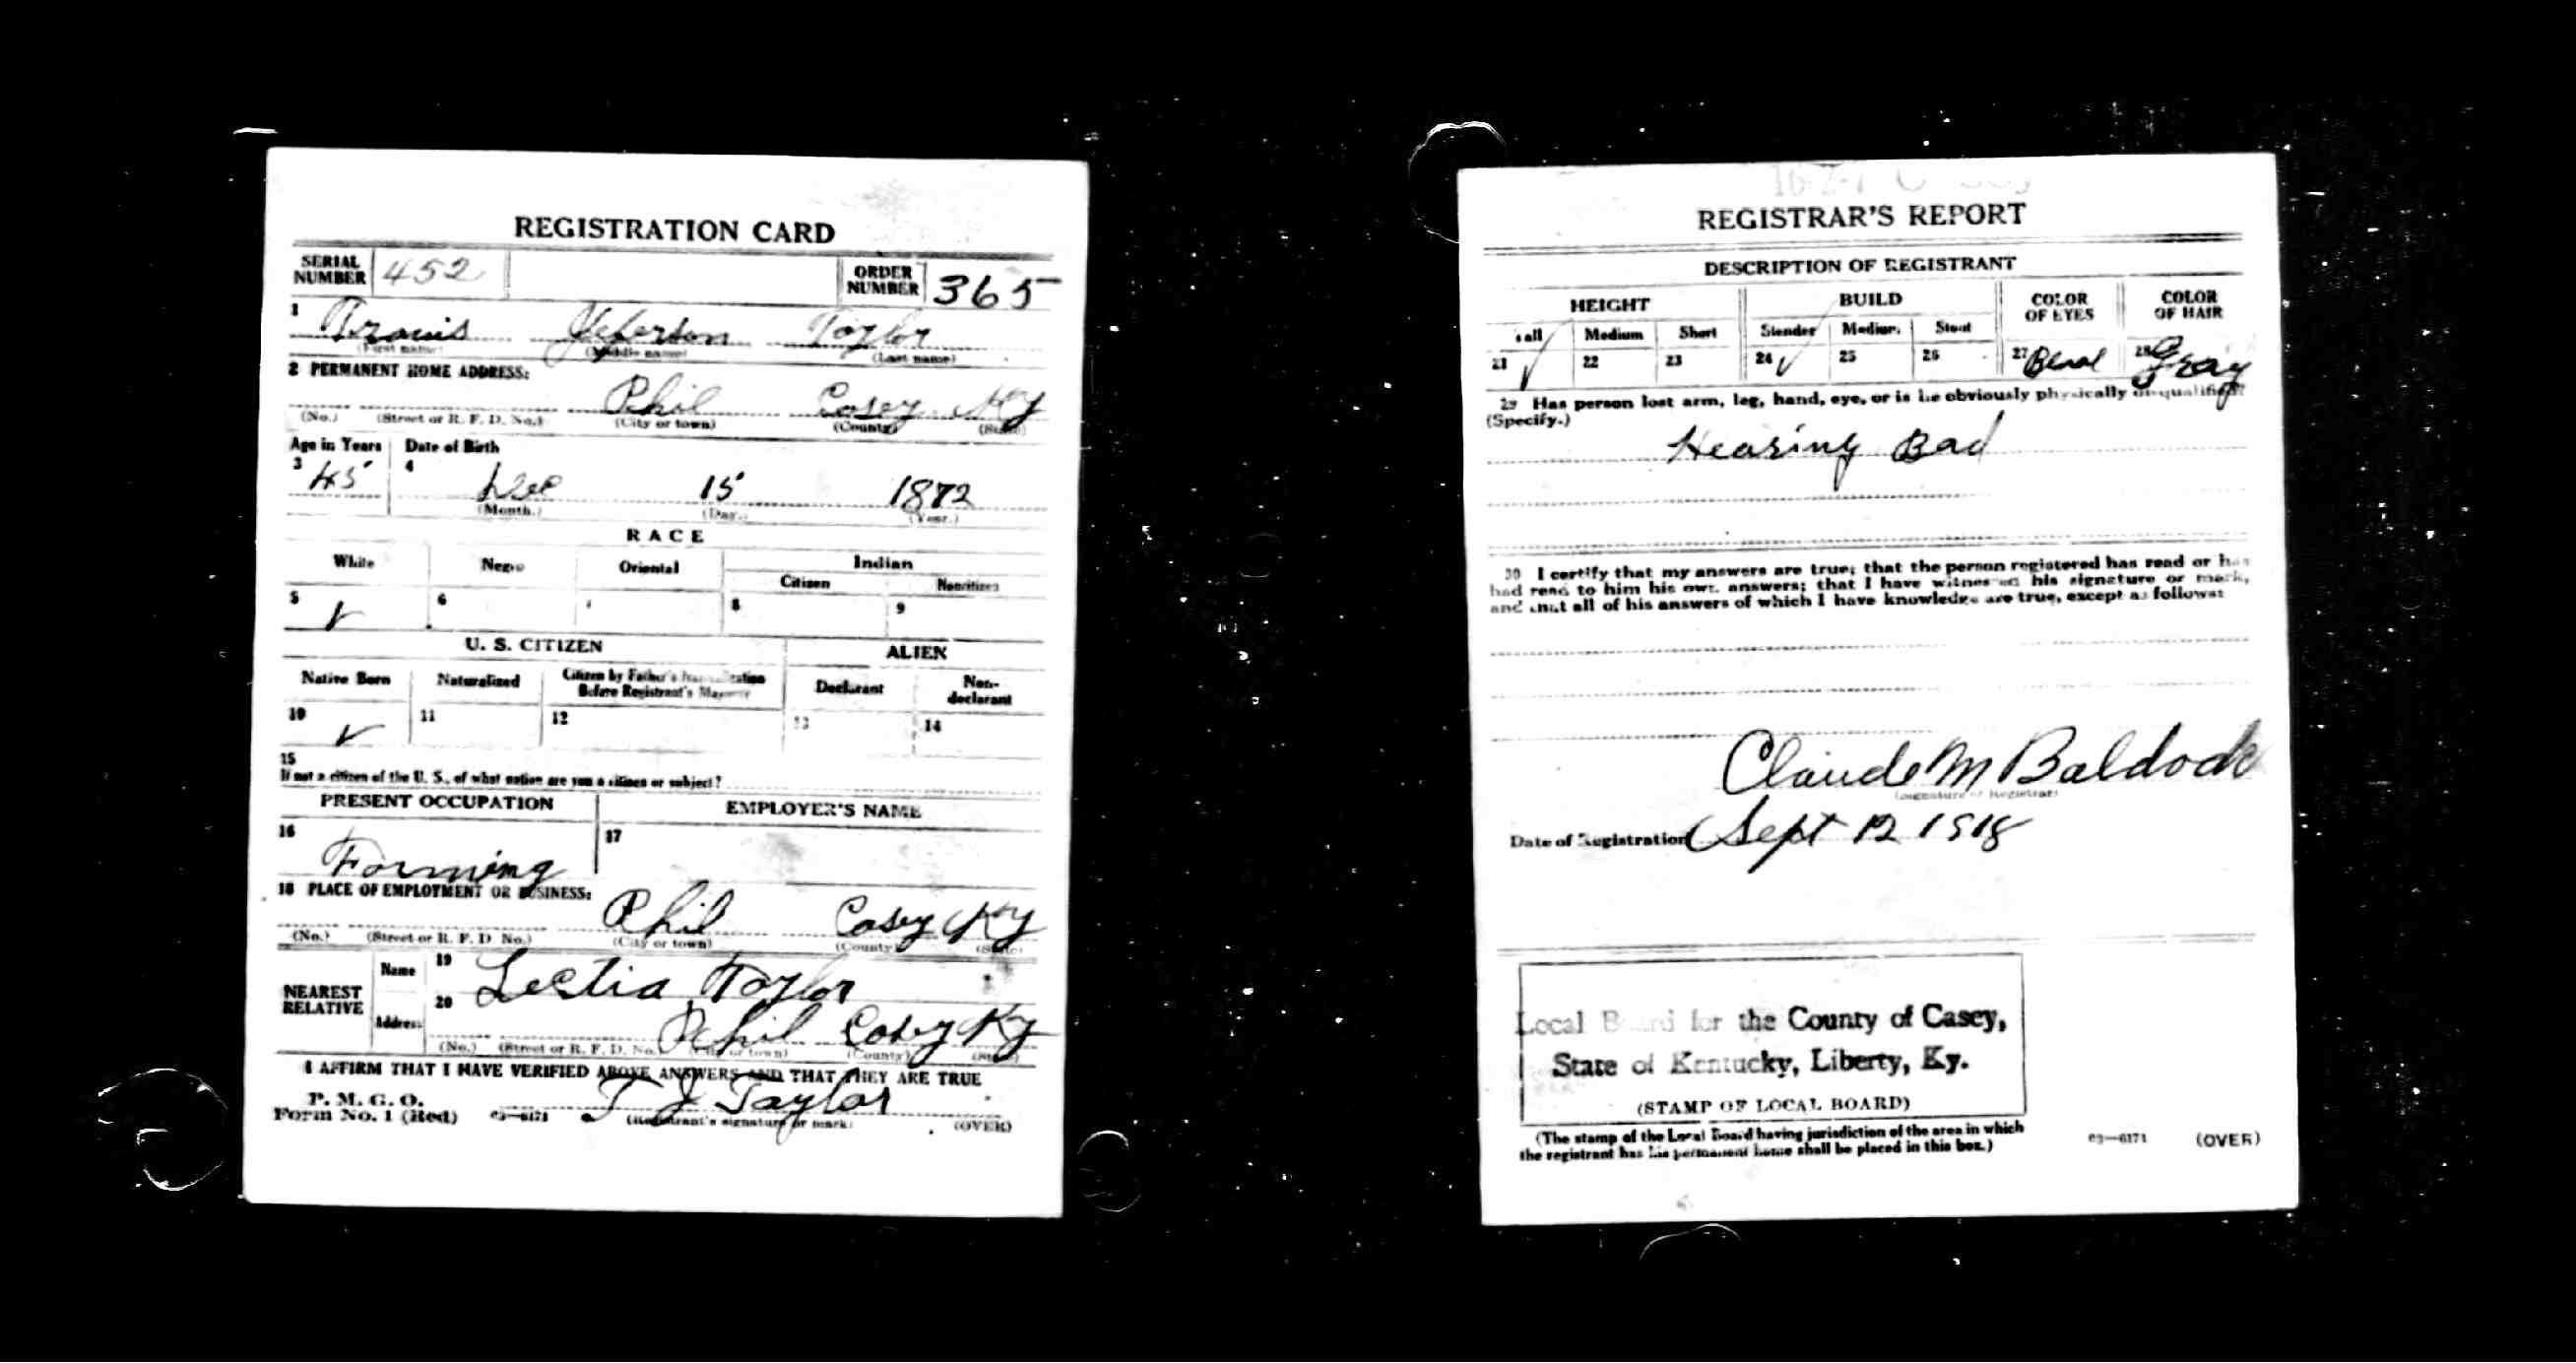 REGISTRATION CARD
SERIAL NUMBER 452 ORDER NUMBER 365
1 Travis Jeferson Taylor
(First name) (Middle name) (Last name)
2 PERMANENT HOME ADDRESS:
Phil Casey Ky
(No.) (Street or R. F. D. No.) (City or town) (County) (State)
Age in Years Date of Birth
3 45 4 Dec 15 1872
(Month.) (Day.) (Year.)
RACE
White Negro Oriental Indian
Citizen Noncitizen
5 ✓ 6 7 8 9
U. S. CITIZEN ALIEN
Native Born Naturalized Citizen by Father's Naturalization Before Registrant's Majority Declarant Non-declarant
10 ✓ 11 12 13 14
15
If not a citizen of the U. S., of what nation are you a citizen or subject?
PRESENT OCCUPATION EMPLOYER'S NAME
16 Farming 17
18 PLACE OF EMPLOYMENT OR BUSINESS:
Phil Casey Ky
(No.) (Street or R. F. D. No.) (City or town) (County) (State)
NEAREST RELATIVE Name 19 Lectia Taylor
Address 20 Phil Casy Ky
(No.) (Street or R. F. D. No.) (City or town) (County) (State)
I AFFIRM THAT I HAVE VERIFIED ABOVE ANSWERS AND THAT THEY ARE TRUE
P. M. G. O.
Form No. 1 (Red) 03—6171 T J Taylor
(Registrant's signature or mark) (OVER)
REGISTRAR'S REPORT
DESCRIPTION OF REGISTRANT
HEIGHT BUILD COLOR OF EYES COLOR OF HAIR
Tall Medium Short Slender Medium Stout
21 ✓ 22 23 24 ✓ 25 26 27 28 Gray
29 Has person lost arm, leg, hand, eye, or is he obviously physically disqualified?
(Specify.)
Hearing Bad
30 I certify that my answers are true; that the person registered has read or has
had read to him his own answers; that I have witnessed his signature or mark,
and that all of his answers of which I have knowledge are true, except as follows:
Claude M Baldock
(Signature of Registrar)
Date of Registration Sept 12 1918
Local Board for the County of Casey,
State of Kentucky, Liberty, Ky.
(STAMP OF LOCAL BOARD)
(The stamp of the Local Board having jurisdiction of the area in which
the registrant has his permanent home shall be placed in this box.)
03—6171 (OVER)